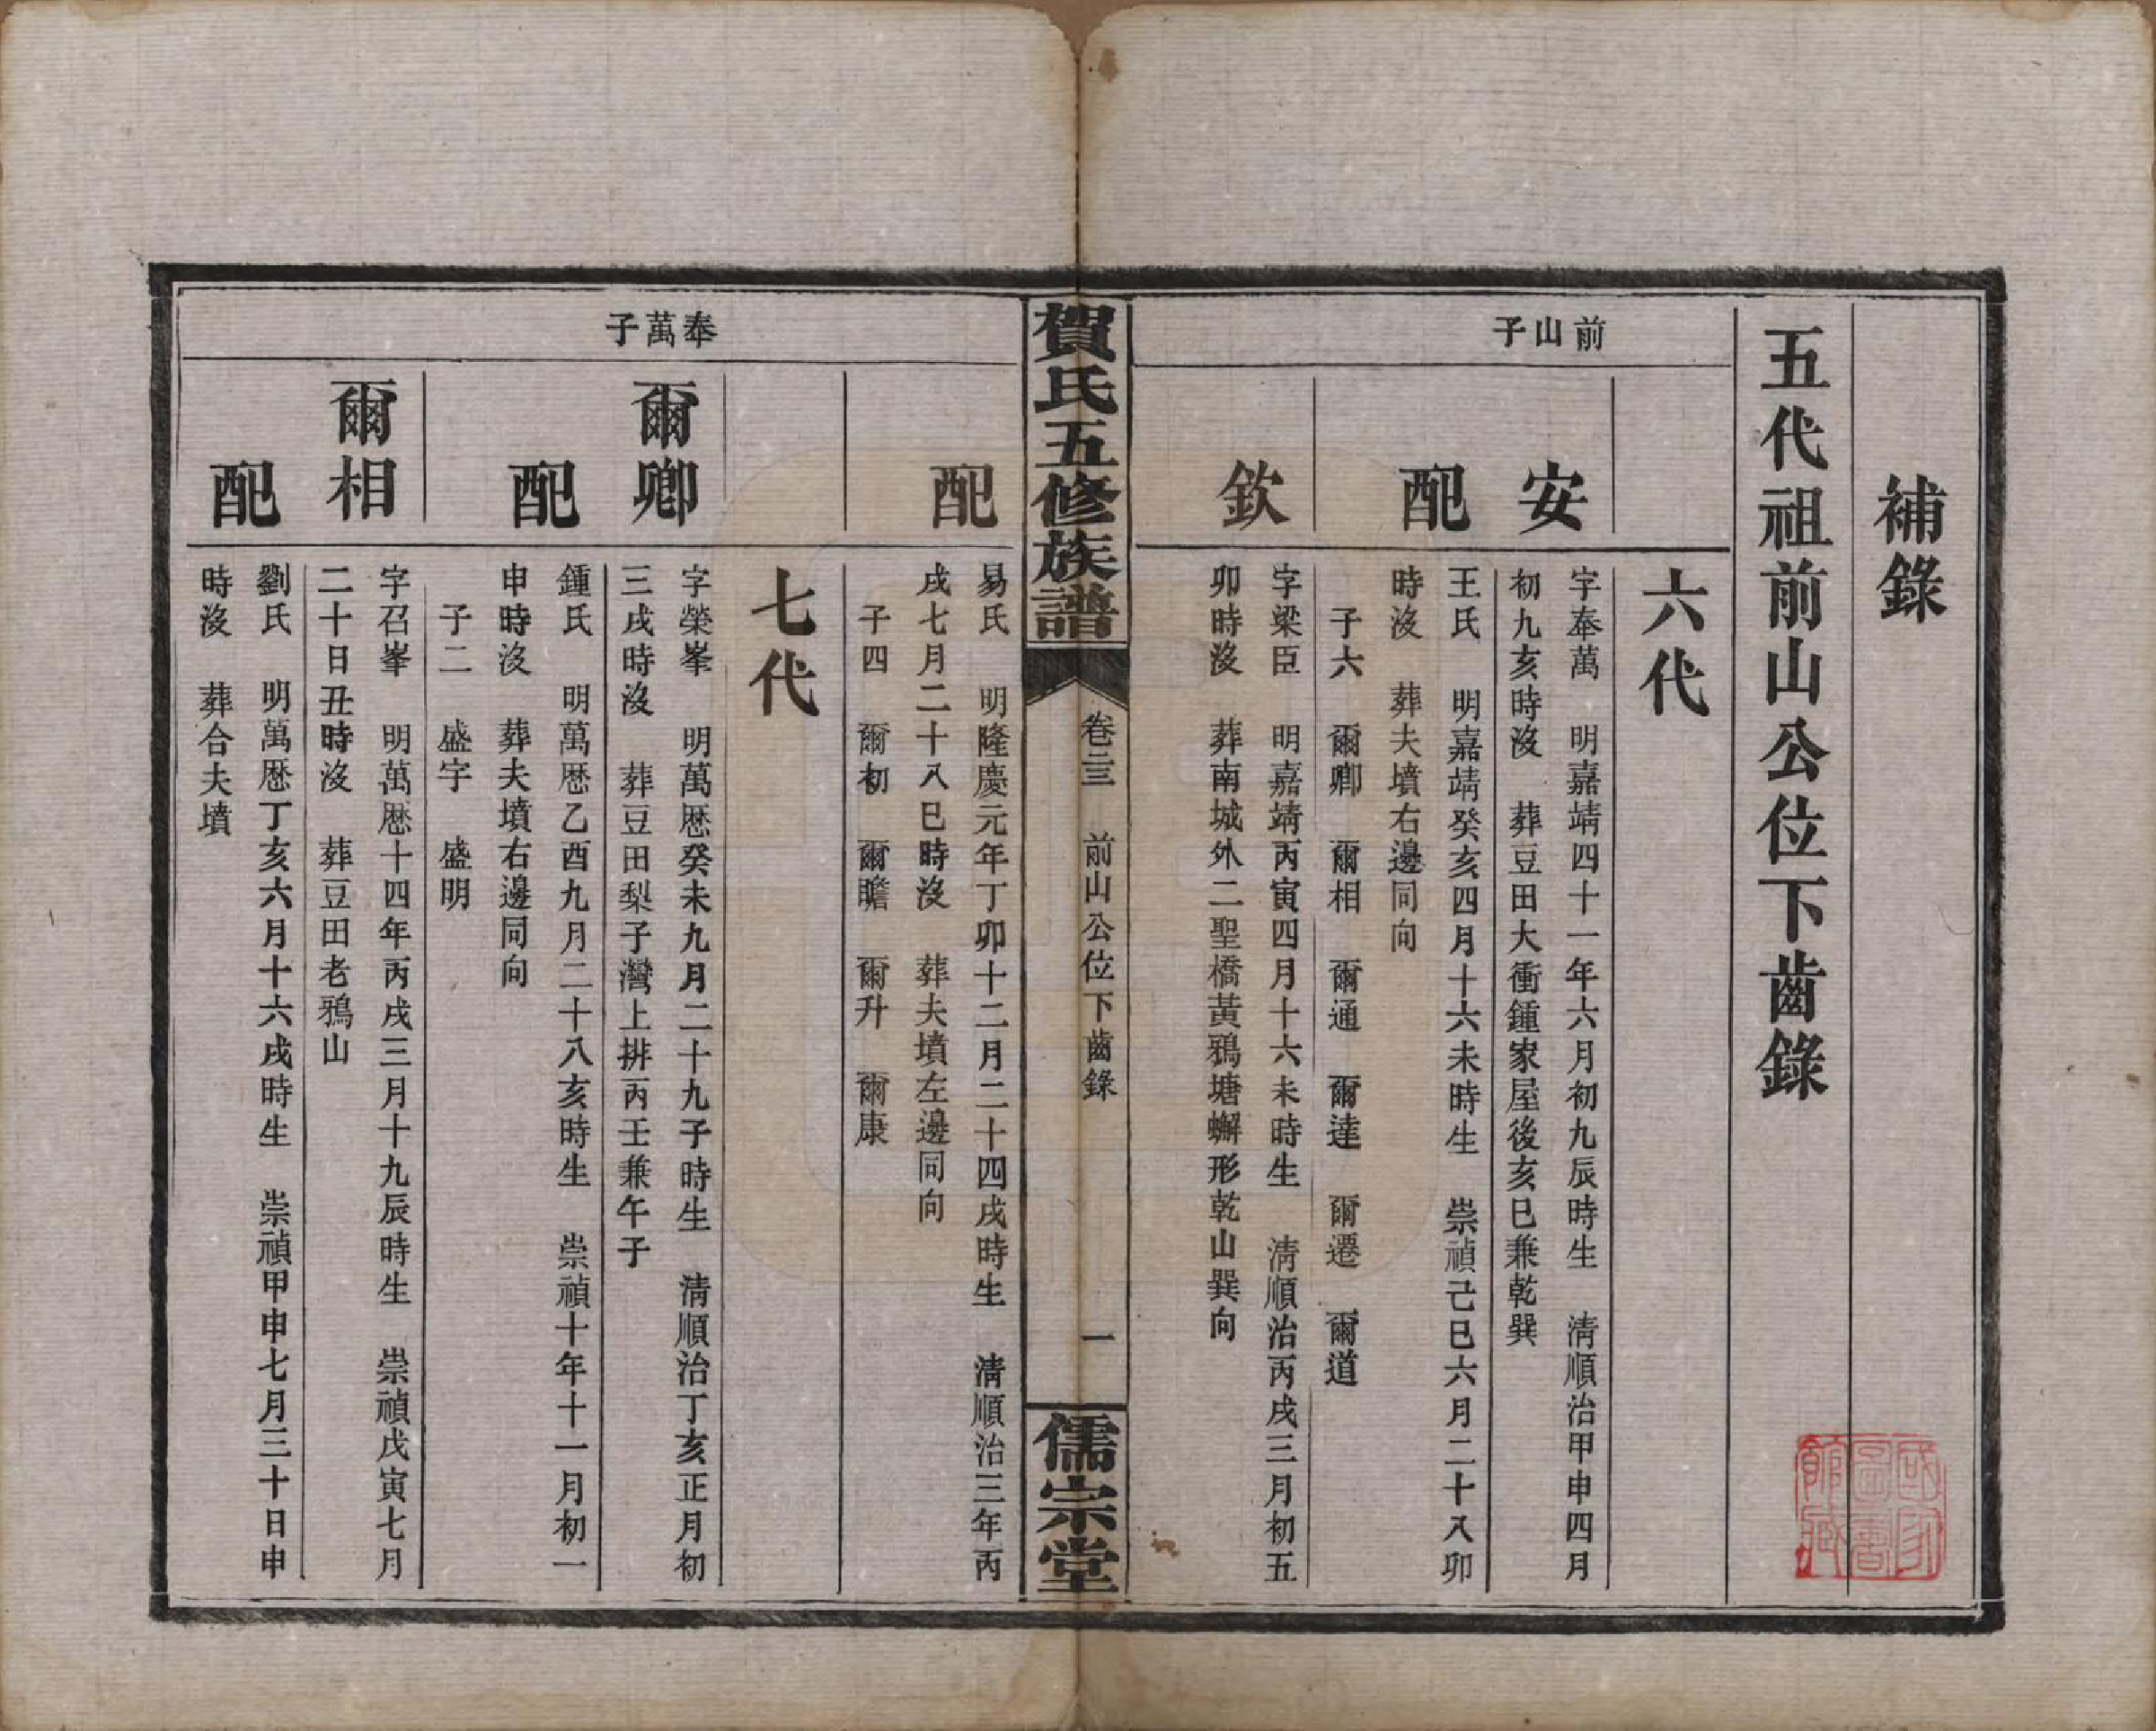 補錄
五代祖前山公位下齒錄
六代
前山子
安
字奉萬　明嘉靖四十一年六月初九辰時生　清順治甲申四月
初九亥時沒　葬豆田大衝鍾家屋後亥巳兼乾巽
配
王氏　明嘉靖癸亥四月十六未時生　崇禎己巳六月二十八卯
時沒　葬夫墳右邊同向
子六　爾卿　爾相　爾通　爾達　爾遷　爾道
欽
字梁臣　明嘉靖丙寅四月十六未時生　清順治丙戌三月初五
卯時沒　葬南城外二聖橋黃鴉塘蠏形乾山巽向
賀氏五修族譜
卷三　前山公位下齒錄
一
儒宗堂
配
易氏　明隆慶元年丁卯十二月二十四戌時生　清順治三年丙
戌七月二十八巳時沒　葬夫墳左邊同向
子四　爾初　爾瞻　爾升　爾康
七代
奉萬子
爾卿
字榮峯　明萬厯癸未九月二十九子時生　清順治丁亥正月初
三戌時沒　葬豆田梨子灣上排丙壬兼午子
配
鍾氏　明萬厯乙酉九月二十八亥時生　崇禎十年十一月初一
申時沒　葬夫墳右邊同向
子二　盛宇　盛明
爾相
字召峯　明萬厯十四年丙戌三月十九辰時生　崇禎戊寅七月
二十日丑時沒　葬豆田老鴉山
配
劉氏　明萬厯丁亥六月十六戌時生　崇禎甲申七月三十日申
時沒　葬合夫墳
國家圖書館藏